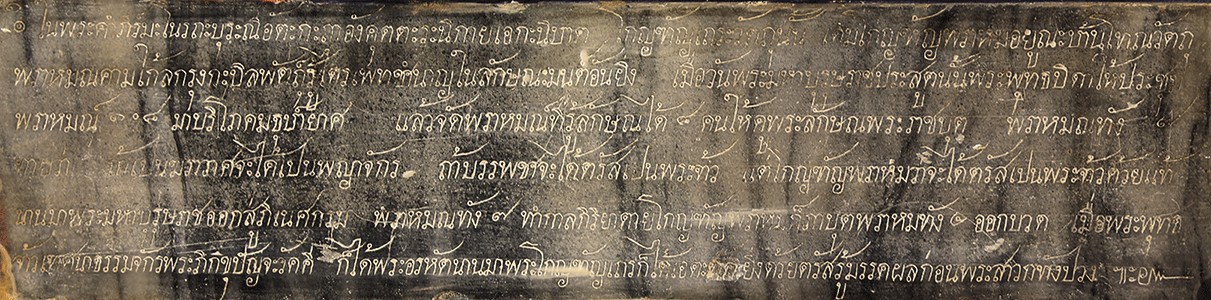 ๏ ในพระคำภรมะโนรถะบุระณีอัตะกะถาอังคุตตะระนิกายเอกะนิบาต โกญทัญเถระวัตถุนั้น เดิมโกญทัญพราหมอยู่ณะบ้านโทณวัตถุ
พราหมณคามใกล้กรุงกะบิลพัศดุ์รู้ไตรเพทชำนาญในลักษณะมนต์อันยิ่ง เมื่อวันพระมหาบุรุษราชประสูตนั้นพระพุทธบิดาให้ประชุม
พราหมณ์ ๑๐๘ มาบริโภคมธุปายาศ แล้วจัดพราหมณที่รู้ลักษณได้ ๘ คนให้ดูพระลักษณพระราชบุตร พราหมณทัง
จะได้เปนพญาจักร ถ้าบรรพชาจะได้ตรัสเปนพระเจ้า แต่โกญทัญพราหมว่าจะได้ตรัสเปนพระเจ้าด้วยแท้
นานมาพระมหาบุรุษราชออกสู่ภิเนศกรม พราหมณทัง ๗ ทำกาลกิริยาตายโกญทัญพราหมก็พาบุตพราหมทัง ๔ ออกบวด เมื่อพระพุทธิ
เจ้าเทศนาธรรมจักรพระภิกขุปัญจะวัคคี ก็ได้พระอรหัตนานมาพระโกญทัญเถรก็ได้ เอตะทักยิ่งด้วยตรัสรู้มรรคผลก่อนพระสาวกทังปวง